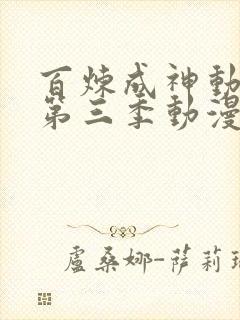 百煉成神動
第三季動漫
盧桑娜-薩莉瑞